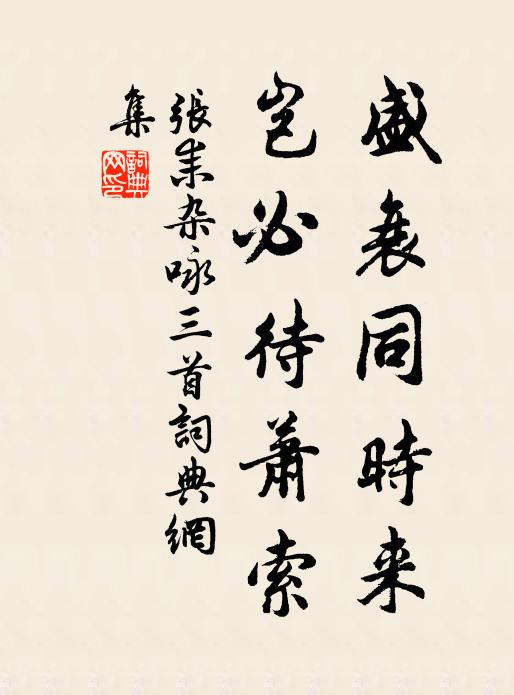 盛衰同時来
岂必待蕭索
張耒杂咏三首詞典網
集
詞典网印